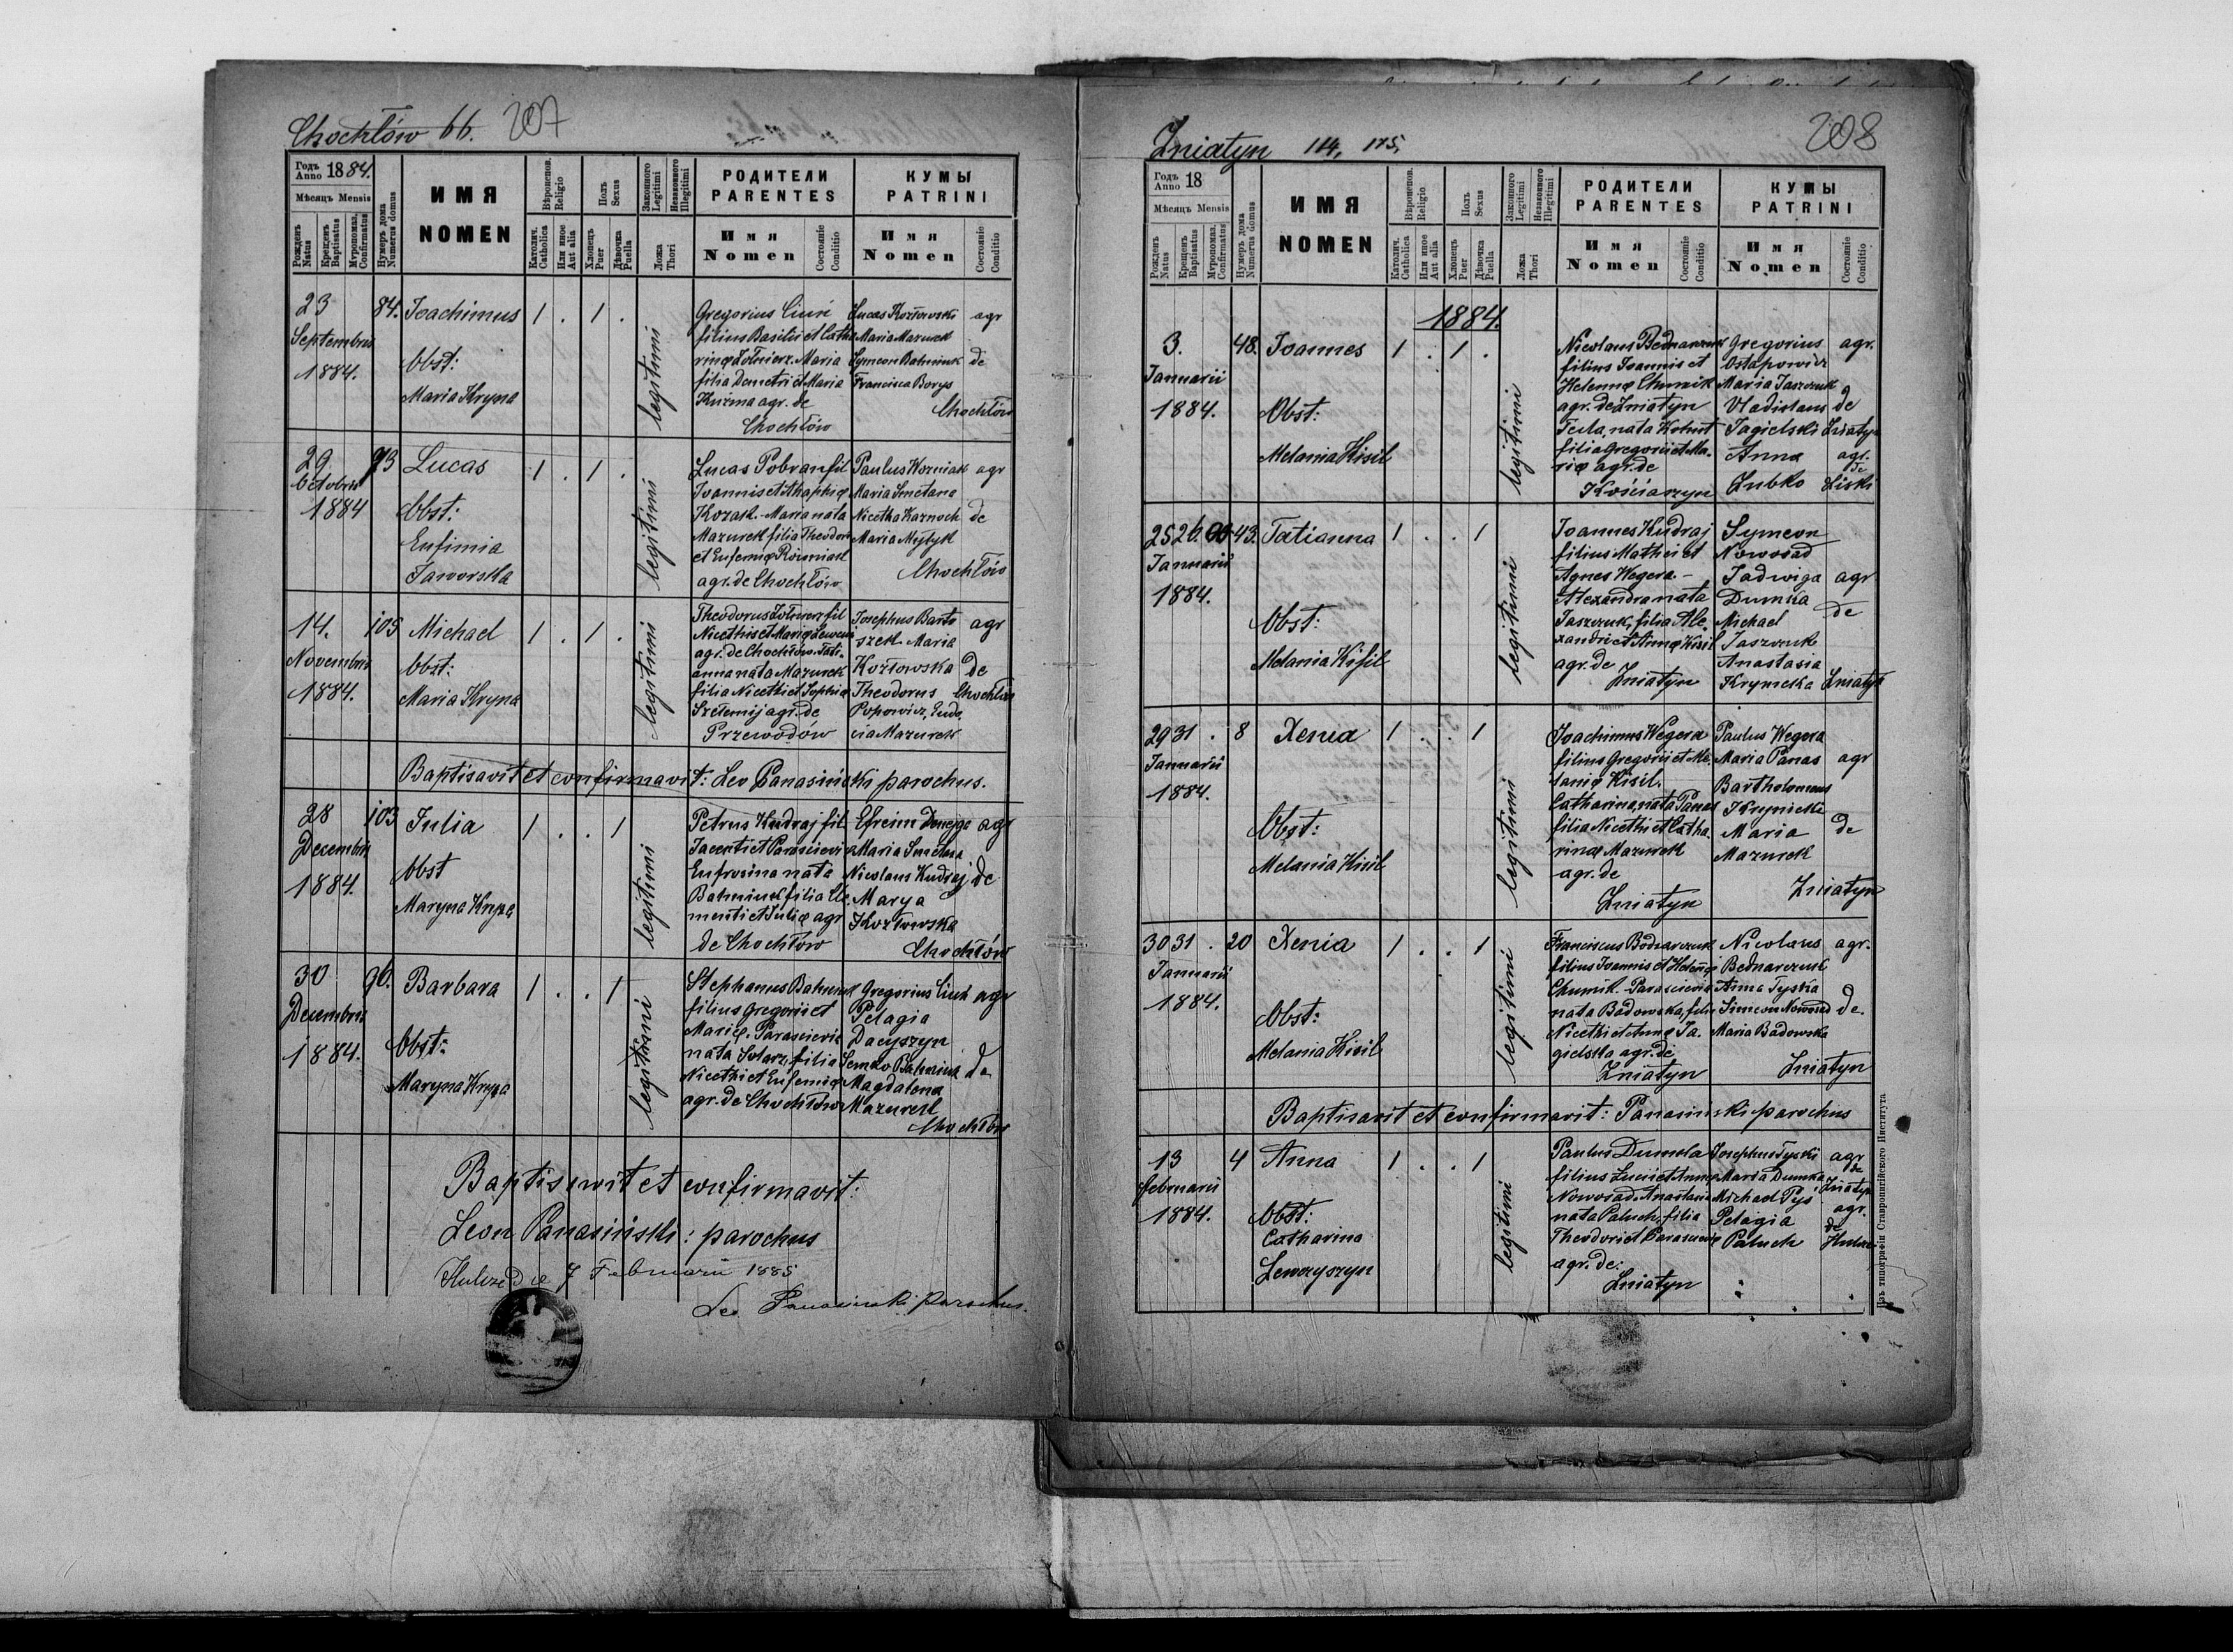 Chochłów 66. 207
Годъ Anno 1884.
Мѣсяцъ Mensis
Рожденъ Natus
Крещенъ Baptisatus
Мѵропомаз. Confirmatus
Нумеръ дома Numerus domus
ИМЯ
NOMEN
Вѣроисповѣд. Religio
Католич. Catholica
Или иное Aut alia
Полъ Sexus
Хлопецъ Puer
Дѣвочка Puella
Законного Legitimi
Незаконного Illegitimi
Ложа Thori
РОДИТЕЛИ
PARENTES
Имя Nomen
Состояніе Conditio
КУМЫ
PATRINI
Имя Nomen
Состояніе Conditio
23 84. Joachimus 1 . 1 .
Septembris
1884.
Obst:
Maria Kryna
legitimi
Gregorius
filius Basilii et Catha
rinę Żołnierz. Maria
filia Demetri et Maria
Kuzma agr. de
Chochłów
Lucas Kozłowski agr
Maria Mazurek
Symeon Bahniuk de
Francisca Borys
Chochłów
29 93 Lucas 1 . 1 .
Octobris
1884
Obst:
Eufimia
Jaworska
legitimi
Lucas Pobran fil
Joannis et Ahaphię
Kozak. Maria nata
Mazurek filia Theodori
et Eufemię Rożniak
agr. de Chochłów
Paulus Kozniak agr
Maria Smetana
Nicetha Karnoch de
Maria
Chochłów
14. 105 Michael 1 . 1 .
Novembris
1884.
Obst:
Maria Kryna
legitimi
Theodorus Żołnierz fil
Nicethis et Marię
agr. de Chochłów. Tati-
anna nata Mazurek
filia Nicethi et Sophię
agr. de
Przewodów
Josephus Barto agr
szek Maria
Kozłowska de
Theodorus Chochłów
Popowicz, Eudo
cia Mazurek
Baptisavit et confirmavit: Leo Panasiński parochus.
28 103 Julia 1 . . 1
Decembris
1884.
Obst
Maryna Kryna
legitimi
Petrus Kudraj fil
Jacenti et Parascievię
Eufrosina nata
Bahniuk filia Cle
menti et Julię agr
de Chochłów
Efreim agr
Maria Smetana
Nicolaus Kudraj de
Marya
Kozłowska
Chochłów
30 96. Barbara 1 . . 1
Decembris
1884.
Obst:
Maryna Kryna
legitimi
Stephanus Bahniuk
filius Gregorii et
Marię. Parascievia
nata Solarz, filia
Nicethi et Eufemię
agr. de Chochłów
Gregorius agr
Pelagia
Dacyszyn
Semko Bahniuk de
Magdalena
Mazurek
Chochłów
Baptisavit et confirmavit:
Leon Panasiński: parochus
Hulcze die 7 Februarii 1885
Leo Panasiński parochus.
Żniatyn 114, 175, 208
Годъ Anno 18
Мѣсяцъ Mensis
Рожденъ Natus
Крещенъ Baptisatus
Мѵропомаз. Confirmatus
Нумеръ дома Numerus domus
ИМЯ
NOMEN
Вѣроисповѣд. Religio
Католич. Catholica
Или иное Aut alia
Полъ Sexus
Хлопецъ Puer
Дѣвочка Puella
Законного Legitimi
Незаконного Illegitimi
Ложа Thori
РОДИТЕЛИ
PARENTES
Имя Nomen
Состояніе Conditio
КУМЫ
PATRINI
Имя Nomen
Состояніе Conditio
1884.
3. 48. Joannes 1 . 1 .
Januarii
1884.
Obst:
Melania Kisil
legitimi
Nicolaus Bednarczuk
filius Joannis et
Helennę Chumik
agr. de Żniatyn
Tecla, nata Kohut
filia Gregorii et Ma-
rię agr. de
Kościaszyn
Gregorius agr.
Ostapowicz
Maria Jaszczuk
Vladislaus de
Jagielski Żniatyn
Anna agr.
de
Zubko Liski
25 26. 43. Tatianna 1 . . 1
Januarii
1884.
Obst:
Melania Kisil
legitimi
Joannes Kudraj
filius Mathei et
Agnes Wegera. -
Alexandra nata
Jaszczuk, filia Ale-
xandri et Annę Kisil
agr. de
Żniatyn
Symeon
Nowosad
Jadwiga agr
Dumka
Michael de
Jaszczuk
Anastasia
Krynicka Żniatyn
29 31 . 8 Xenia 1 . . 1
Januarii
1884.
Obst:
Melania Kisil
legitimi
Joachimus Wegera
filius Gregorii et Me-
lanię Kisil.
Catharina, nata Panas
filia Nicethi et Catha-
rinę Mazurek
agr. de
Żniatyn
Paulus Wegera
Maria Panas agr
Bartholomeus
Krynicki
Maria de
Mazurek
Żniatyn
30 31 . 20 Xenia 1 . . 1
Januarii
1884.
Obst:
Melania Kisil
legitimi
Franciscus Bednarczuk
filius Joannis et Helenę
Chumik. Parascievia
nata Badowska, filia
Nicethi et Annę Ja-
gielska agr. de
Żniatyn
Nicolaus agr.
Bednarczuk
Anna Tyska
Simeon Nowosad de.
Maria Badowska
Żniatyn
Baptisavit et confirmavit: Panasiński parochus
13 4 Anna 1 . . 1
Februarii
1884.
Obst:
Catharina
Lewczyszyn
legitimi
Paulus Dumka
filius Lucii et Annę
Nowosad. Anastasia
nata Paluch, filia
Theodori et Parascievię
agr. de:
Żniatyn
Josephus Tyski agr
de
Maria Dumka Żniatyn
Michael Pys agr.
Pelagia de
Paluch Hulcze
Изъ типографіи Ставропигійского Института